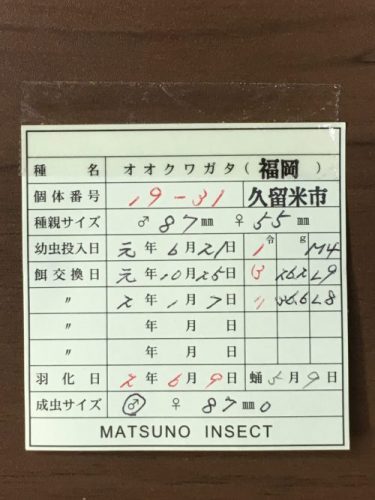 種 名 オオクワガタ(福岡)
個体番号 19-31 久留米市
種親サイズ ♂ 87㎜ ♀ 55㎜
幼虫投入日 元年 6月21日 1令 g M4
餌交換日 元年10月25日
〃 2年 1月 7日
〃 年 月 日
〃 年 月 日
羽化日 2年 6月 9日 蛹 5月 9日
成虫サイズ ♂ ♀ 87㎜0
MATSUNO INSECT